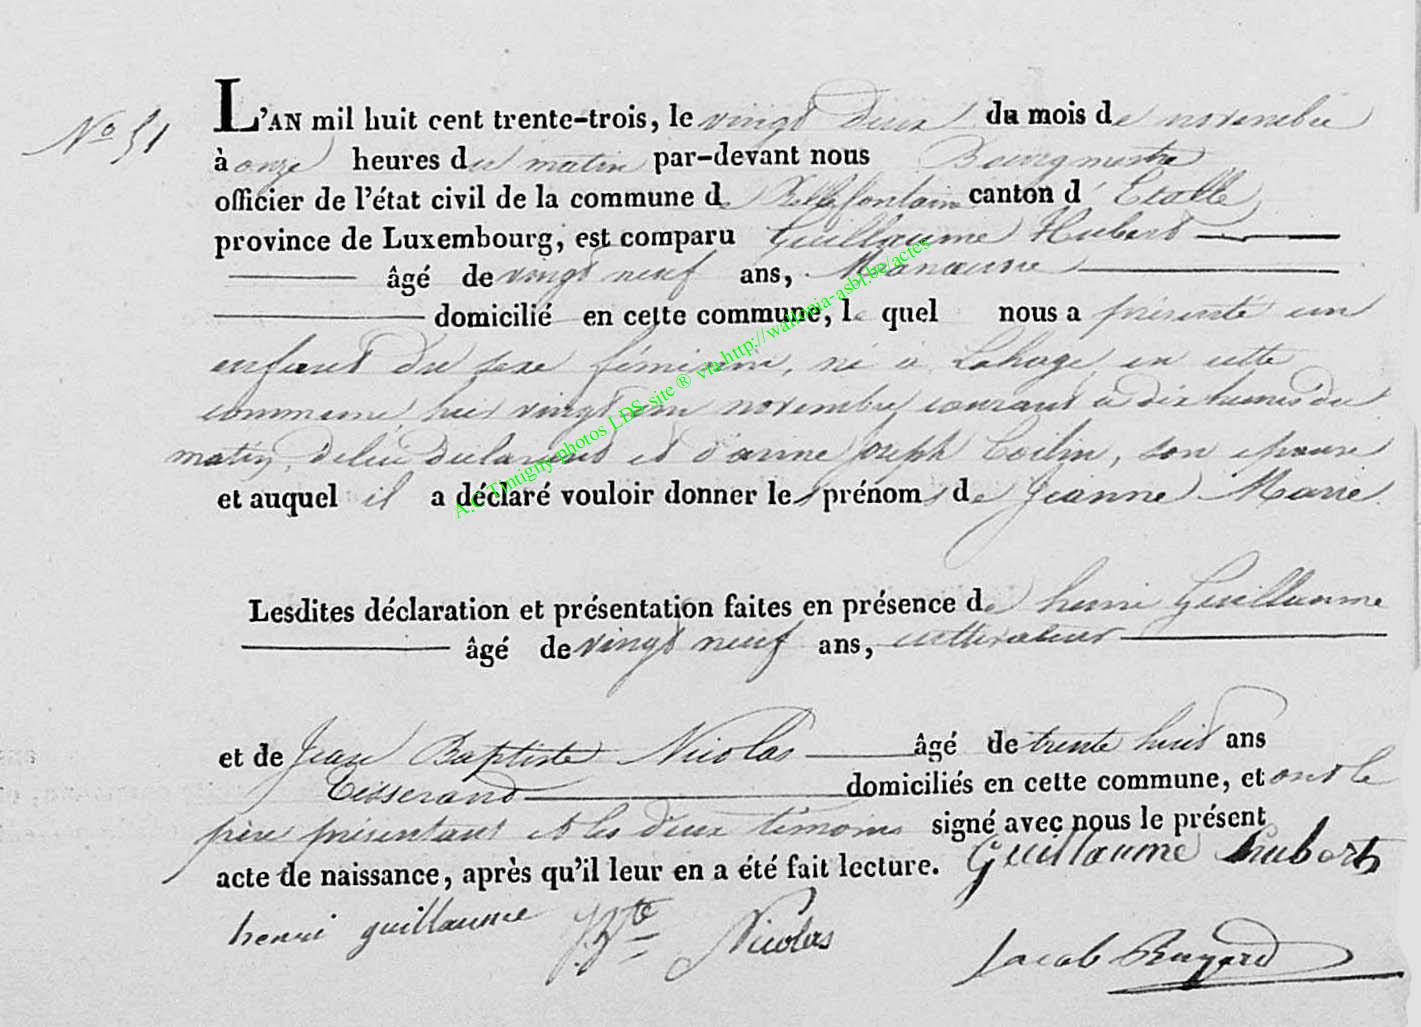 No 51
L'AN mil huit cent trente-trois, le vingt deux du mois de novembre
à onze heures du matin par-devant nous Bourgmestre
officier de l'état civil de la commune de Bellefontaine canton d' Etalle
province de Luxembourg, est comparu Guillaume Hubert
âgé de vingt neuf ans, Manœuvre
domicilié en cette commune, le quel nous a présenté un
enfant du sexe féminin, né à Lahage en cette
commune hier vingt un novembre courant à dix heures du
matin, de lui déclarant et d'anne joseph son épouse
et auquel il a déclaré vouloir donner les prénoms de Jeanne Marie
Lesdites déclaration et présentation faites en présence de henri Guillaume
âgé de vingt neuf ans, cultivateur
et de Jean Baptiste Nicolas âgé de trente huit ans
Tisserand domiciliés en cette commune, et ont le
père présentant et les deux témoins signé avec nous le présent
acte de naissance, après qu'il leur en a été fait lecture. Guillaume hubert
henri guillaume J.Bte Nicolas
Jacob
A.C Tintigny photos LDS site ® via http://wallonia-asbl.be/actes